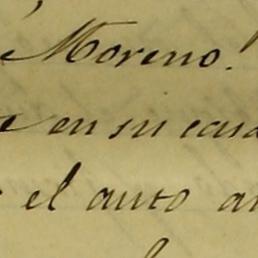 Moreno!
en su
el auto